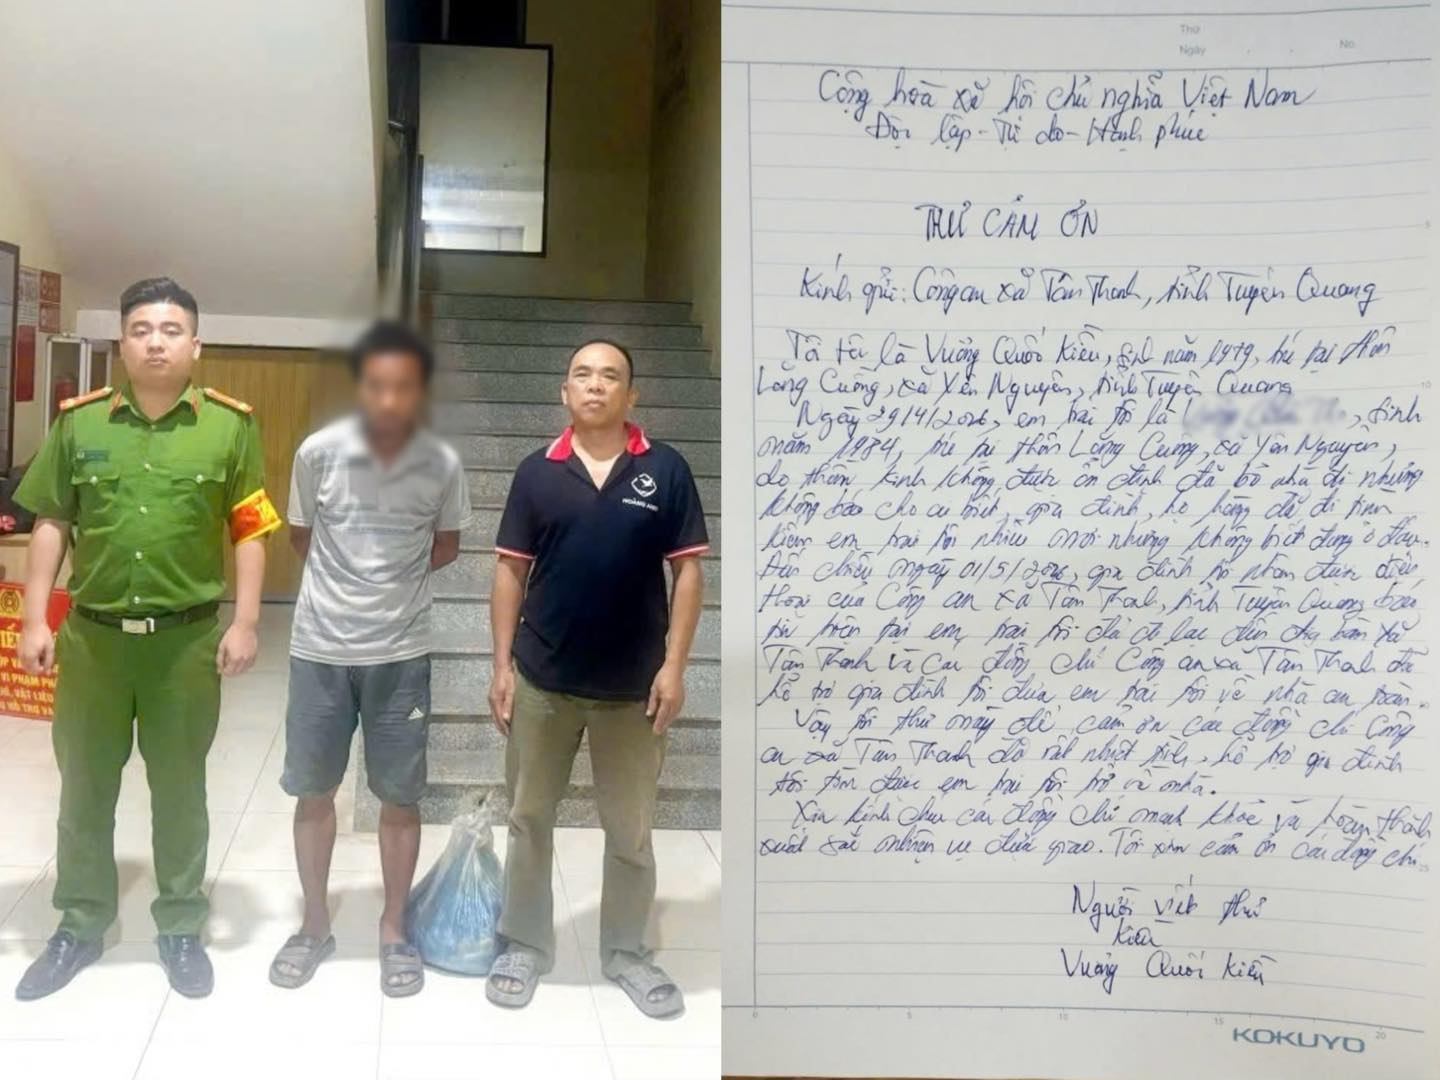 HOÀNG ANH
VI PHẠM PH
Thứ
Ngày . . No.
Cộng hoà xã hội chủ nghĩa Việt Nam
Độc lập - Tự do - Hạnh phúc
THƯ CẢM ƠN
Kính gửi: Công an xã Tân Thanh, tỉnh Tuyên Quang
Tôi tên là Vương Quốc Kiều, sinh năm 1979, trú tại thôn
Lăng Cuồng, xã Yên Nguyên, tỉnh Tuyên Quang
Ngày 29/4/2026, em trai tôi là , sinh
năm 1984, trú tại thôn Lăng Cuồng, xã Yên Nguyên,
do thần kinh không được ổn định đã bỏ nhà đi nhưng
không báo cho ai biết, gia đình, họ hàng đã đi tìm
kiếm em trai tôi nhiều nơi nhưng không biết đang ở đâu.
Đến chiều ngày 01/5/2026, gia đình tôi nhận được điện
thoại của Công an xã Tân Thanh, tỉnh Tuyên Quang báo
tin hiện tại em trai tôi đã đi lạc đến địa bàn xã
Tân Thanh và các đồng chí Công an xã Tân Thanh đã
hỗ trợ gia đình tôi đưa em trai tôi về nhà an toàn.
Vậy tôi thư này để cảm ơn các đồng chí Công
an xã Tân Thanh đã rất nhiệt tình, hỗ trợ gia đình
tôi tìm được em trai tôi trở về nhà.
Xin kính chúc các đồng chí mạnh khỏe và hoàn thành
xuất sắc nhiệm vụ được giao. Tôi xin cảm ơn các đồng chí
Người viết thư
Kiều
Vương Quốc Kiều
0 5 10 15 20
KOKUYO